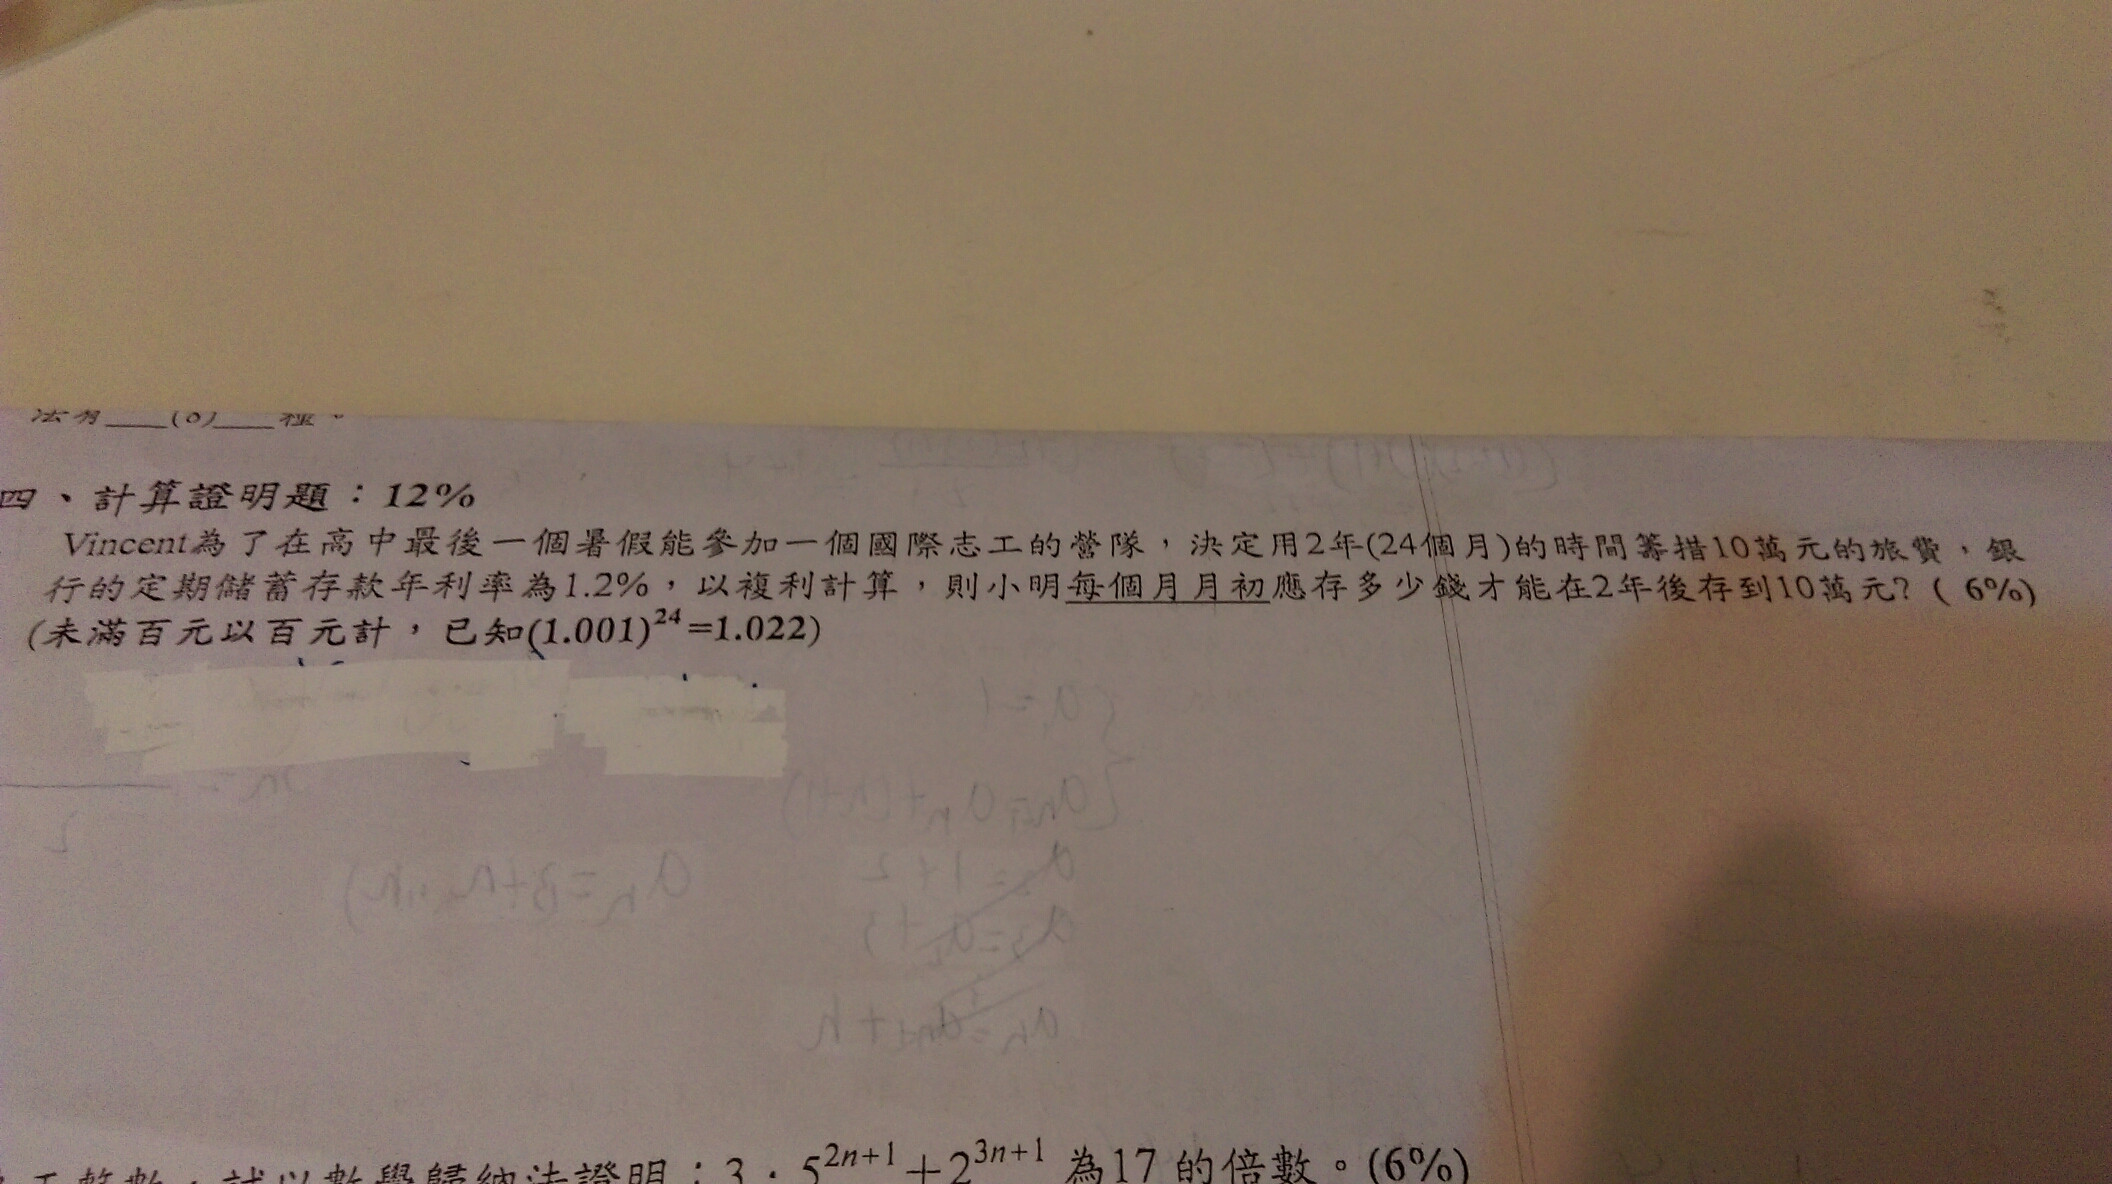 法有___(8)___種。
四、計算證明題：12%
Vincent為了在高中最後一個暑假能參加一個國際志工的營隊，決定用2年(24個月)的時間籌措10萬元的旅費，銀
行的定期儲蓄存款年利率為1.2%，以複利計算，則小明每個月月初應存多少錢才能在2年後存到10萬元? ( 6%)
(未滿百元以百元計，已知(1.001)²⁴=1.022)
正整數，試以數學歸納法證明：3‧5²ⁿ⁺¹+2³ⁿ⁺¹ 為17的倍數。(6%)